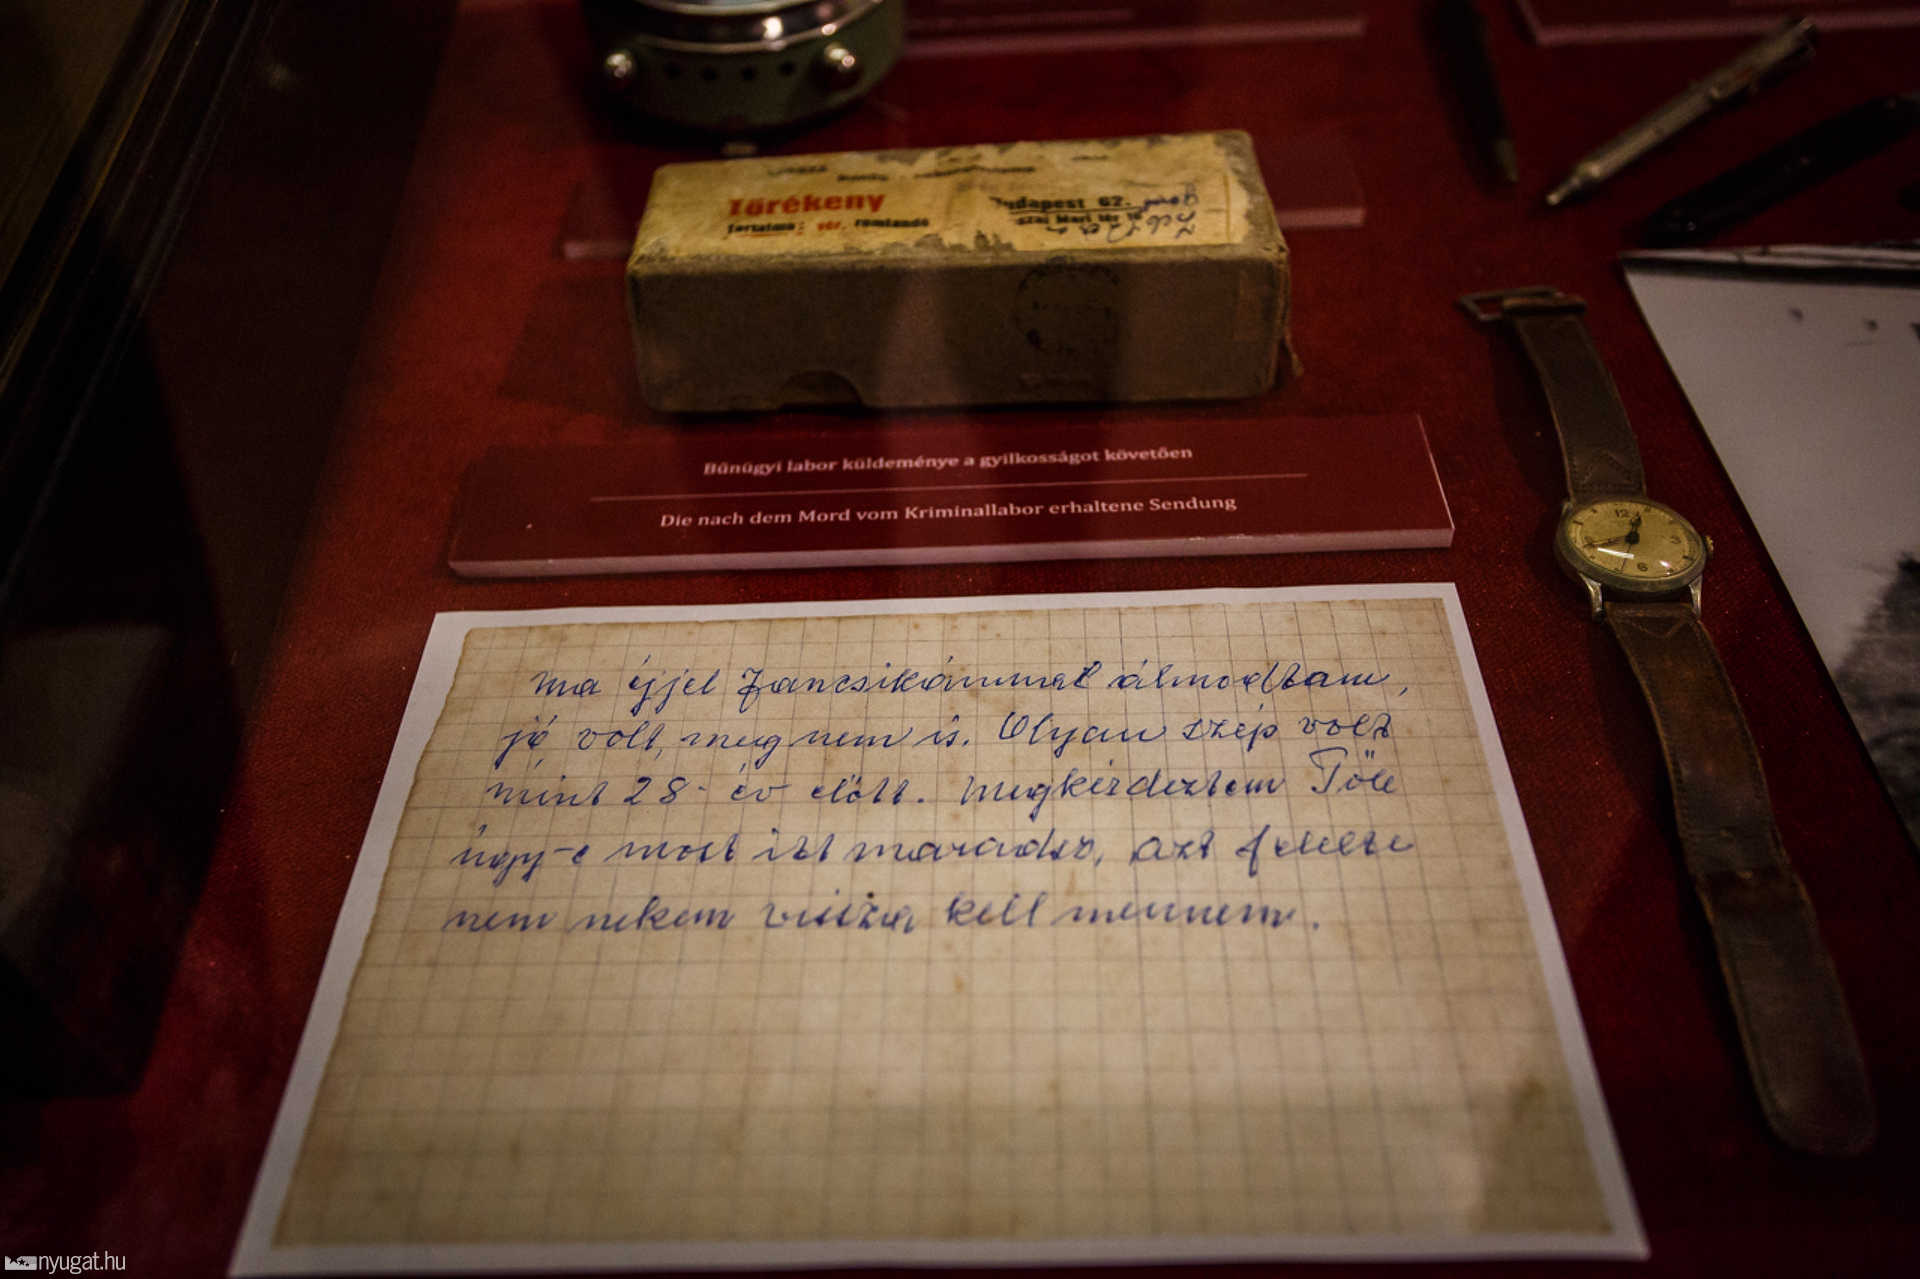 Törékeny
Tartalma: vér, romlandó
Budapest 62.
Bűnügyi labor küldeménye a gyilkosságot követően
Die nach dem Mord vom Kriminallabor erhaltene Sendung
12
3
6
Ma éjjel Jancsikámmal álmodtam,
jó volt, meg nem is. Olyan szép volt
mint 28- év előtt. Megkérdeztem Tőle
úgy-e most itt maradsz, azt felelte
nem nekem vissza kell mennem.
nyugat.hu